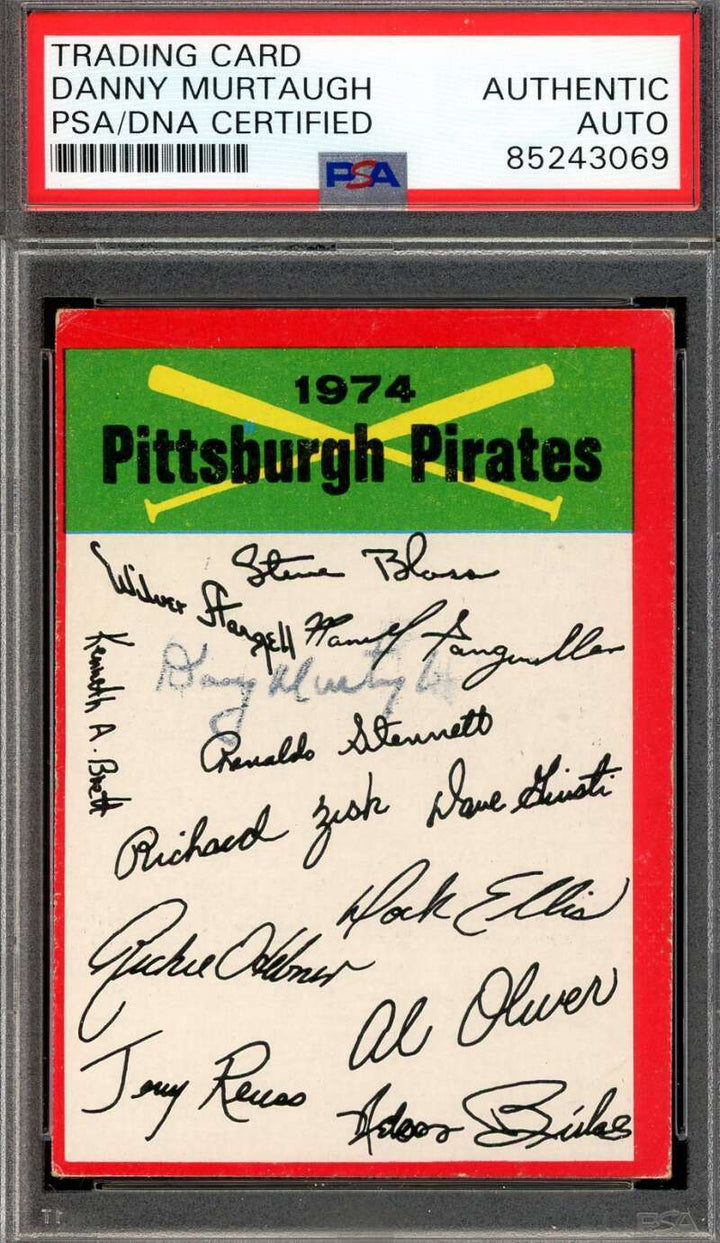 TRADING CARD
DANNY MURTAUGH
PSA/DNA CERTIFIED
AUTHENTIC
AUTO
85243069
PSA
1974
Pittsburgh Pirates
Steve Blass
Wilver Stargell
Manuel Sanguillen
Kenneth A. Brett
Danny Murtaugh
Renaldo Stennett
Richard Zisk
Dave Giusti
Dock Ellis
Richie Hebner
Al Oliver
Jerry Reuss
PSA